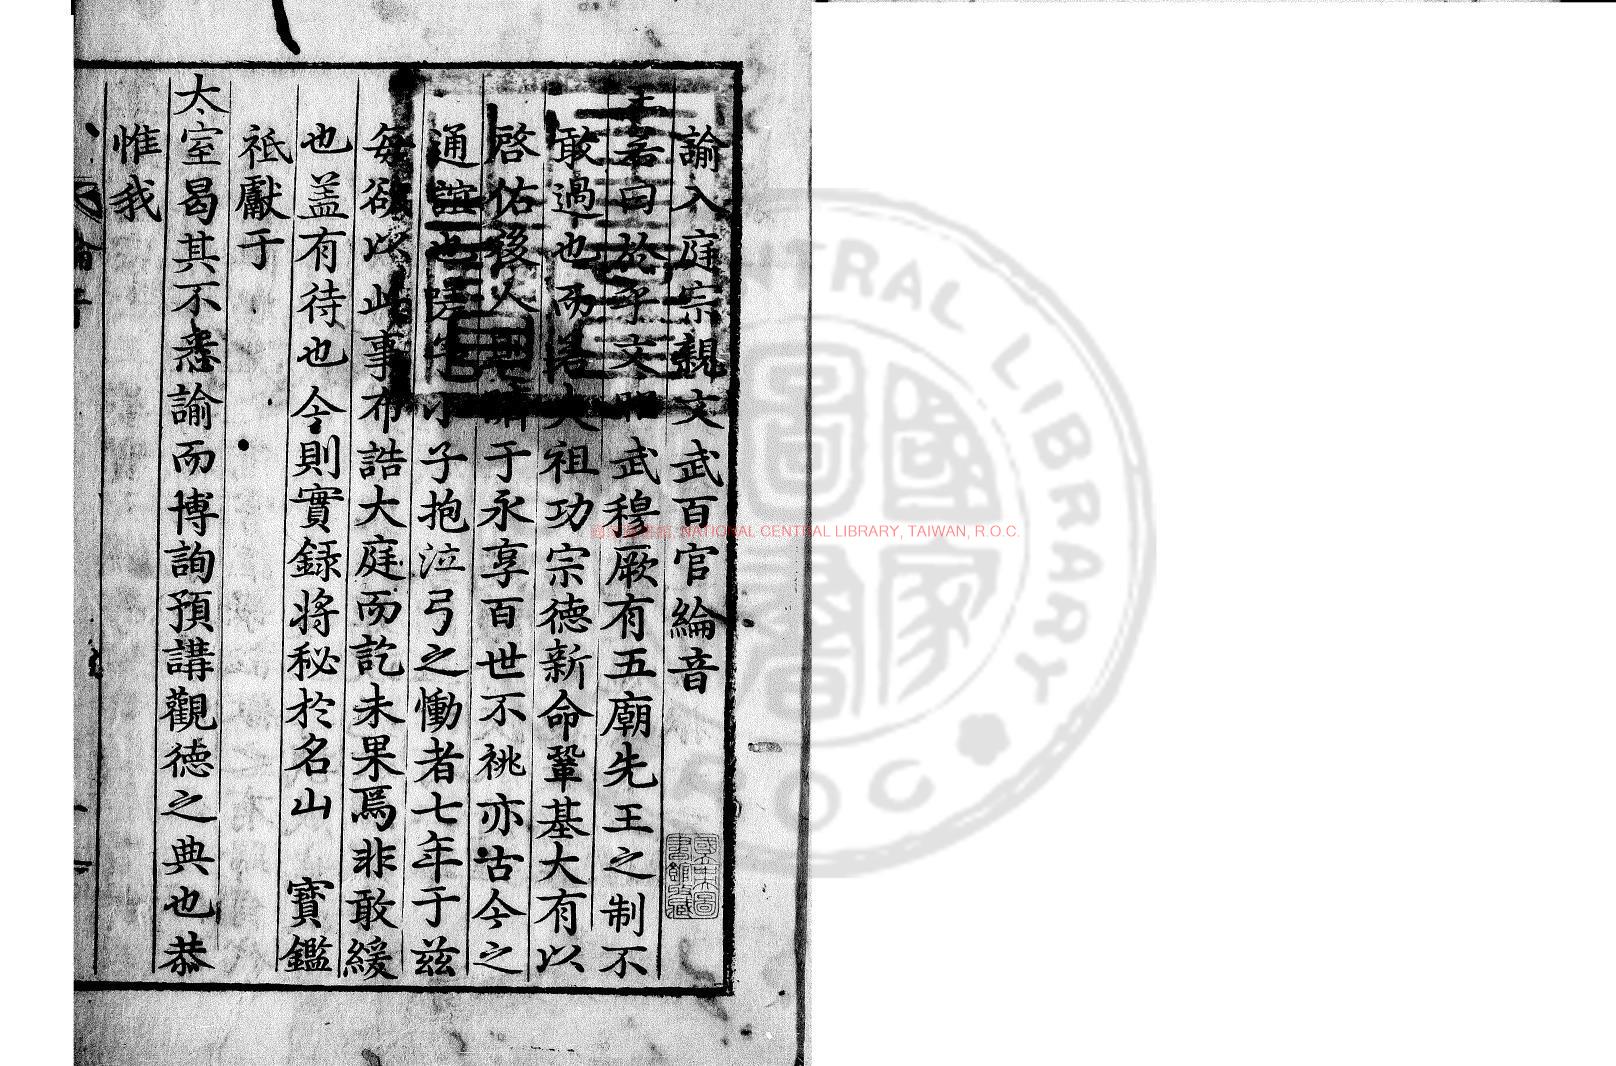 諭入庭宗親文武百官綸音
王若曰於乎文昭武穆厥有五廟先王之制不
敢過也而若夫祖功宗德新命鞏基大有以
啓佑後人于永享百世不祧亦古今之
通誼也予小子抱泣弓之慟者七年于茲
每欲以此事布誥大庭而訖未果焉非敢緩
也盖有待也今則實錄將秘於名山 寶鑑
祗獻于
太室曷其不悉諭而博詢預講觀德之典也恭
惟我
NATIONAL CENTRAL LIBRARY, TAIWAN, R.O.C.
國立中央圖書館藏